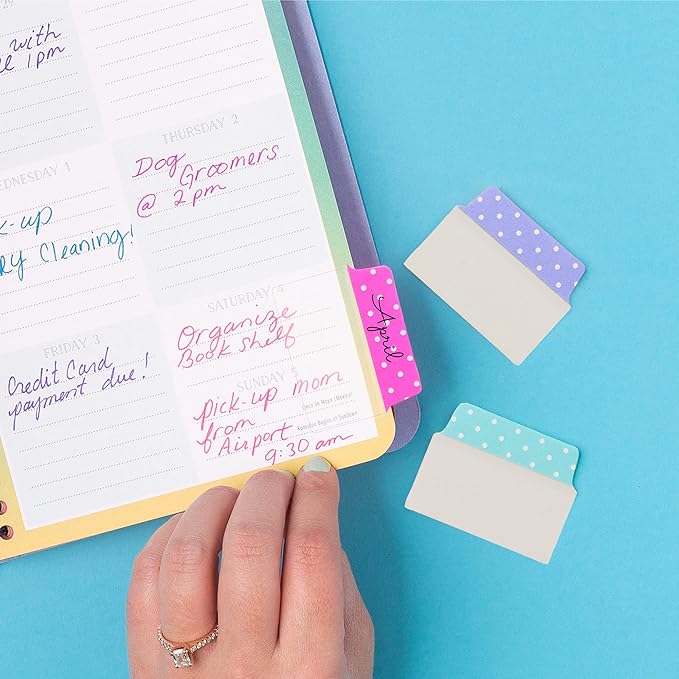 29
with
1pm
THURSDAY 2
Dog
Groomers
@ 2pm
WEDNESDAY 1
k-up
ry Cleaning!
SATURDAY 4
Organize
Book shelf
FRIDAY 3
Credit Card
payment due!
SUNDAY 5
Pick-up mom
from
Airport
9:30 am
Cinco de Mayo (Mexico)
Ramadan Begins at Sundown
April